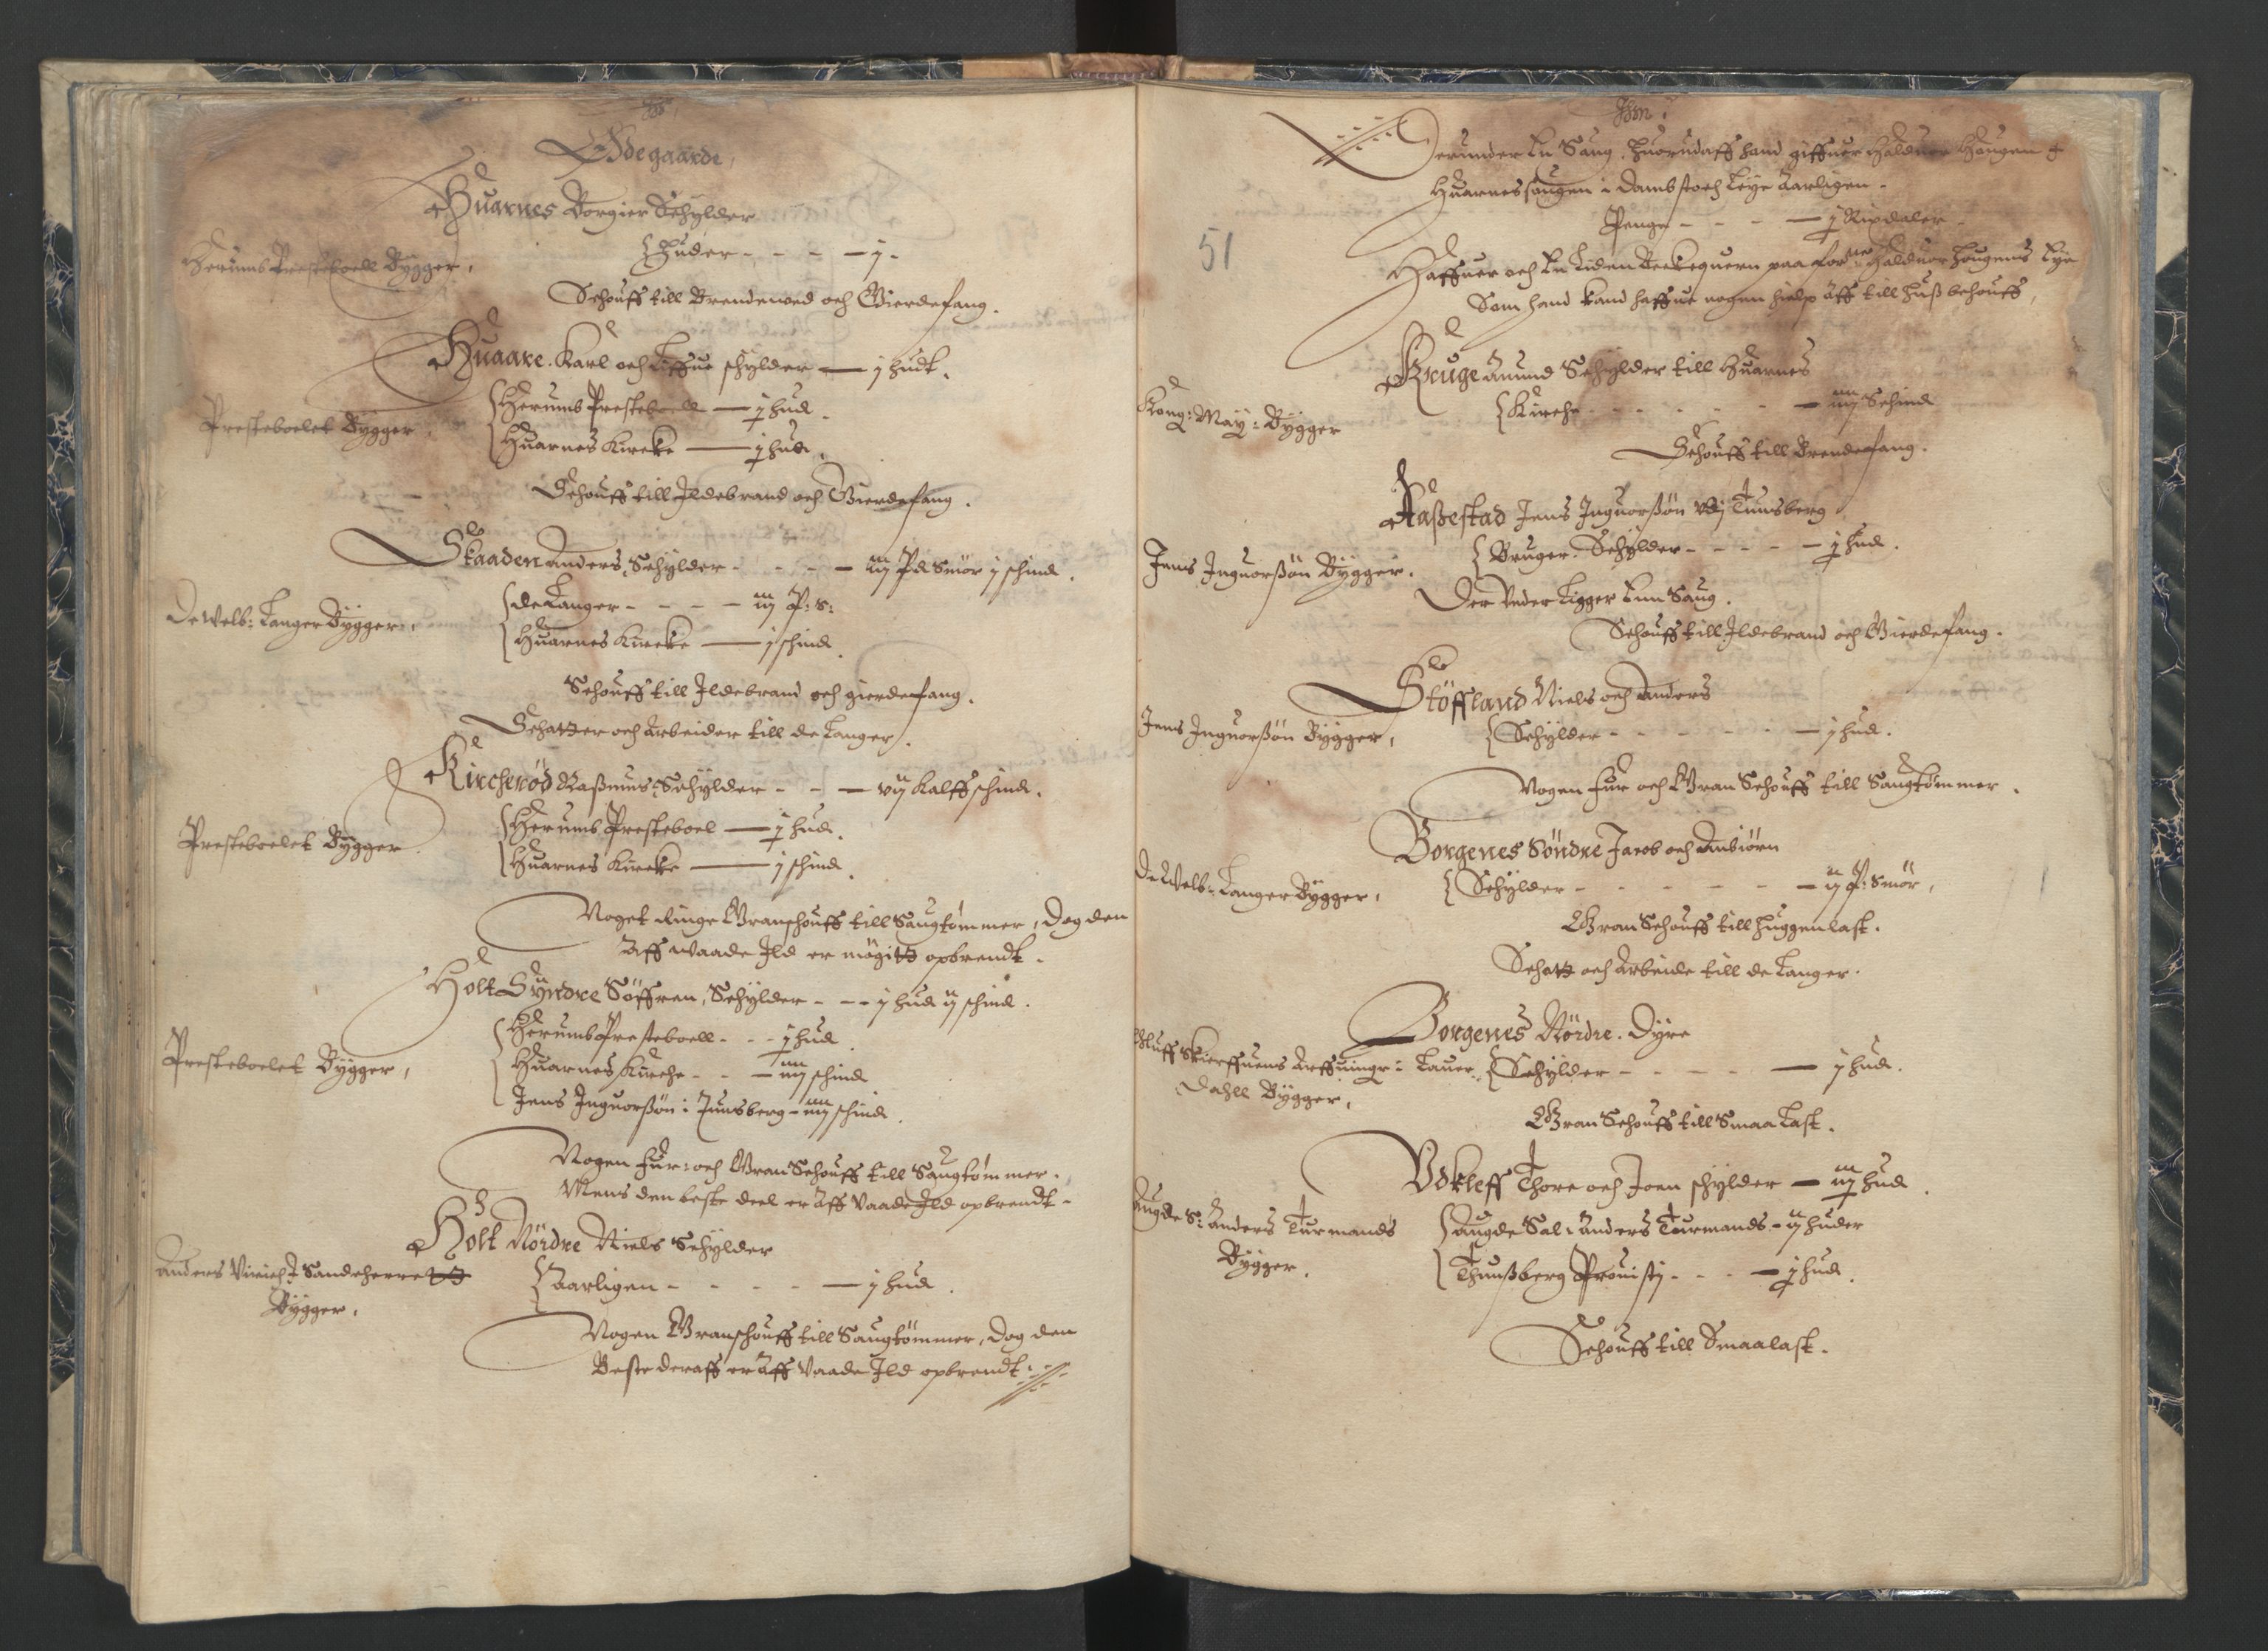 Ødegaarde,
Huarnes Borgier Schylder
Herums Presteboell Bygger,
Huder - - - j.
Schouff till Brendewed och Gierdefang.
Huaare. Karl och Luffue schylder — j hudt.
Presteboelet Bygger
Herums Presteboell — j hud.
Huarnes Kirke — j hud.
Schouff till Ildebrand och Gierdefang.
Skaaden Anders, Schylder - - - iij Pd Smör j schind.
De Welb: Langer Bygger,
de Langer - - - - iij P: S:
Huarnes Kircke — j schind.
Schouff till Ildebrand och gierdefang.
Schatter och Arbeider till de Langer.
Kircherød Rasmus, Schylder - - — vij Kalffschind.
Presteboelet Bygger
Herums Presteboel — j hud.
Huarnes Kircke — j schind.
Noget Ringe Granschouff till Saugtømmer, Dog den
Aff waade Ild er mögitt opbrendt.
Holt Syndre Söffren, Schylder - - - j hud ij schind.
Presteboelet Bygger,
Herums Presteboell - - - j hud
Huarnes Kirche - - — iiij schind
Jens Inguorßön i Tunsberg - iiij schind.
Nogen Fur: och Gran Schouff till Saugtømmer.
Mens den beste deel er Aff Vaade Ild opbrendt -
Holt Nördre Niels Schylder
Anders i Sandeherrett
Bygger,
Aarligen - - - - — j hud.
Nogen Granschouff till Saugtömmer, Dog den
Beste deraff er Aff Vaade Ild opbrendt
Derunder En Saug, huorudaff hand giffuer Halduor Haugen
Huarnessaugen i Dambstoch Leye Aarligen -
Penge - - - — j Rixdaler -
51
Haffuer och En Liden Beckequern paa forne Halduor Hougens Eye
Som hand kand haffue nogen hielp Aff till huß behouff,
Kruge Amund Schylder till Huarnes
Kong: May: Bygger
Kirche - - - - - — iiij Schind
Schouff till Brendefang.
Aaßestad Jens Inguorßön vdj Tunsberg
Jens Inguorßön Bygger.
Bruger. Schylder - - - - — j hud.
Der Vnder Ligger Enn Saug.
Schouff till Ildebrand och Gierdefang.
Stöffland Niels och Anders
Jens Inguorßön Bygger,
Schylder - - - - - — j hud.
Nogen Fur och Gran Schouff till Saugtömmer.
Borgenes Söndre Jacob och Anbiörn
De Welb: Langer Bygger,
Schylder - - - - - — ij P: Smör,
Gran Schouff till Huggenlast.
Schatt och Arbeide till de Langer.
Borgenes Nördre. Dyre
Oluff Skierffuens Arffuinger i Lauer
Dahll Bygger,
Schylder - - - - — j hud.
Gran Schouff till Smaa Last.
Vdkleff Thore och Joen schylder — iij hud
Augde S: Anders Turmands
Bygger.
Augde Sal: Anders Turmands - ij huder
Thunßberg Prouistj - - - — j hud.
Schouff till Smaalast.